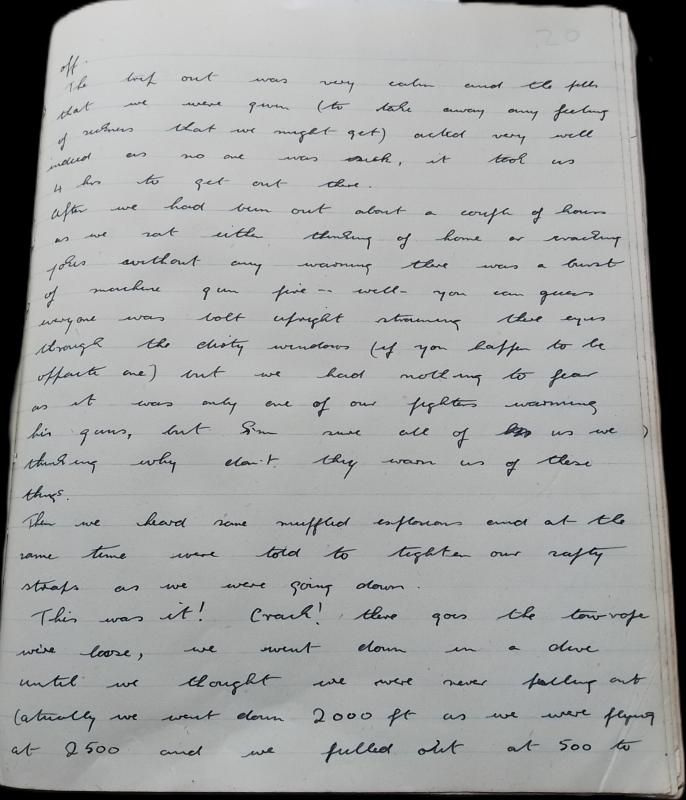 20
off.
The trip out was very calm and the pills
that we were given (to take away any feeling
of sickness that we might get) acted very well
indeed as no one was sick, it took us
4 hrs to get out there.
After we had been out about a couple of hours
as we sat either thinking of home or cracking
jokes without any warning there was a burst
of machine gun fire -- well - you can guess
everyone was bolt upright straining their eyes
through the dirty windows (if you happen to be
opposite one) but we had nothing to fear
as it was only one of our fighters warming
his guns, but I'm sure all of us we
thinking why don't they warn us of these
things.
Then we heard some muffled explosions and at the
same time were told to tighten our safty
straps as we were going down.
This was it! Crack! there goes the tow rope
we're loose, we went down in a dive
until we thought we were never pulling out
(atually we went down 2000 ft as we were flying
at 2500 and we pulled out at 500 to